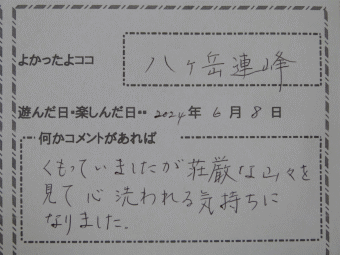 よかったよココ 八ヶ岳連峰
遊んだ日・楽しんだ日・・ 2024年 6月 8日
何かコメントがあれば
くもっていましたが荘厳な山々を
見て心洗われる気持ちに
なりました。